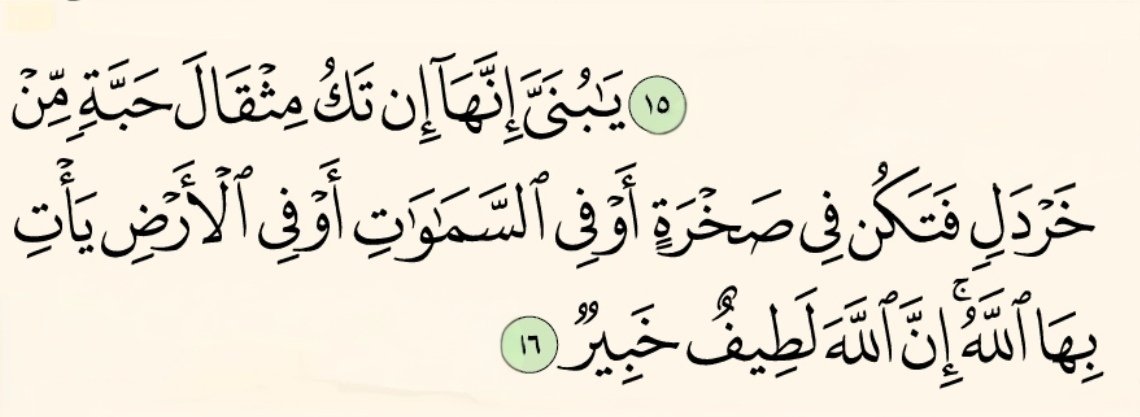 ١٥ يَـٰبُنَىَّ إِنَّهَآ إِن تَكُ مِثْقَالَ حَبَّةٍ مِّنْ
خَرْدَلٍ فَتَكُن فِى صَخْرَةٍ أَوْ فِى ٱلسَّمَـٰوَٰتِ أَوْ فِى ٱلْأَرْضِ يَأْتِ
بِهَا ٱللَّهُ ۚ إِنَّ ٱللَّهَ لَطِيفٌ خَبِيرٌ ١٦